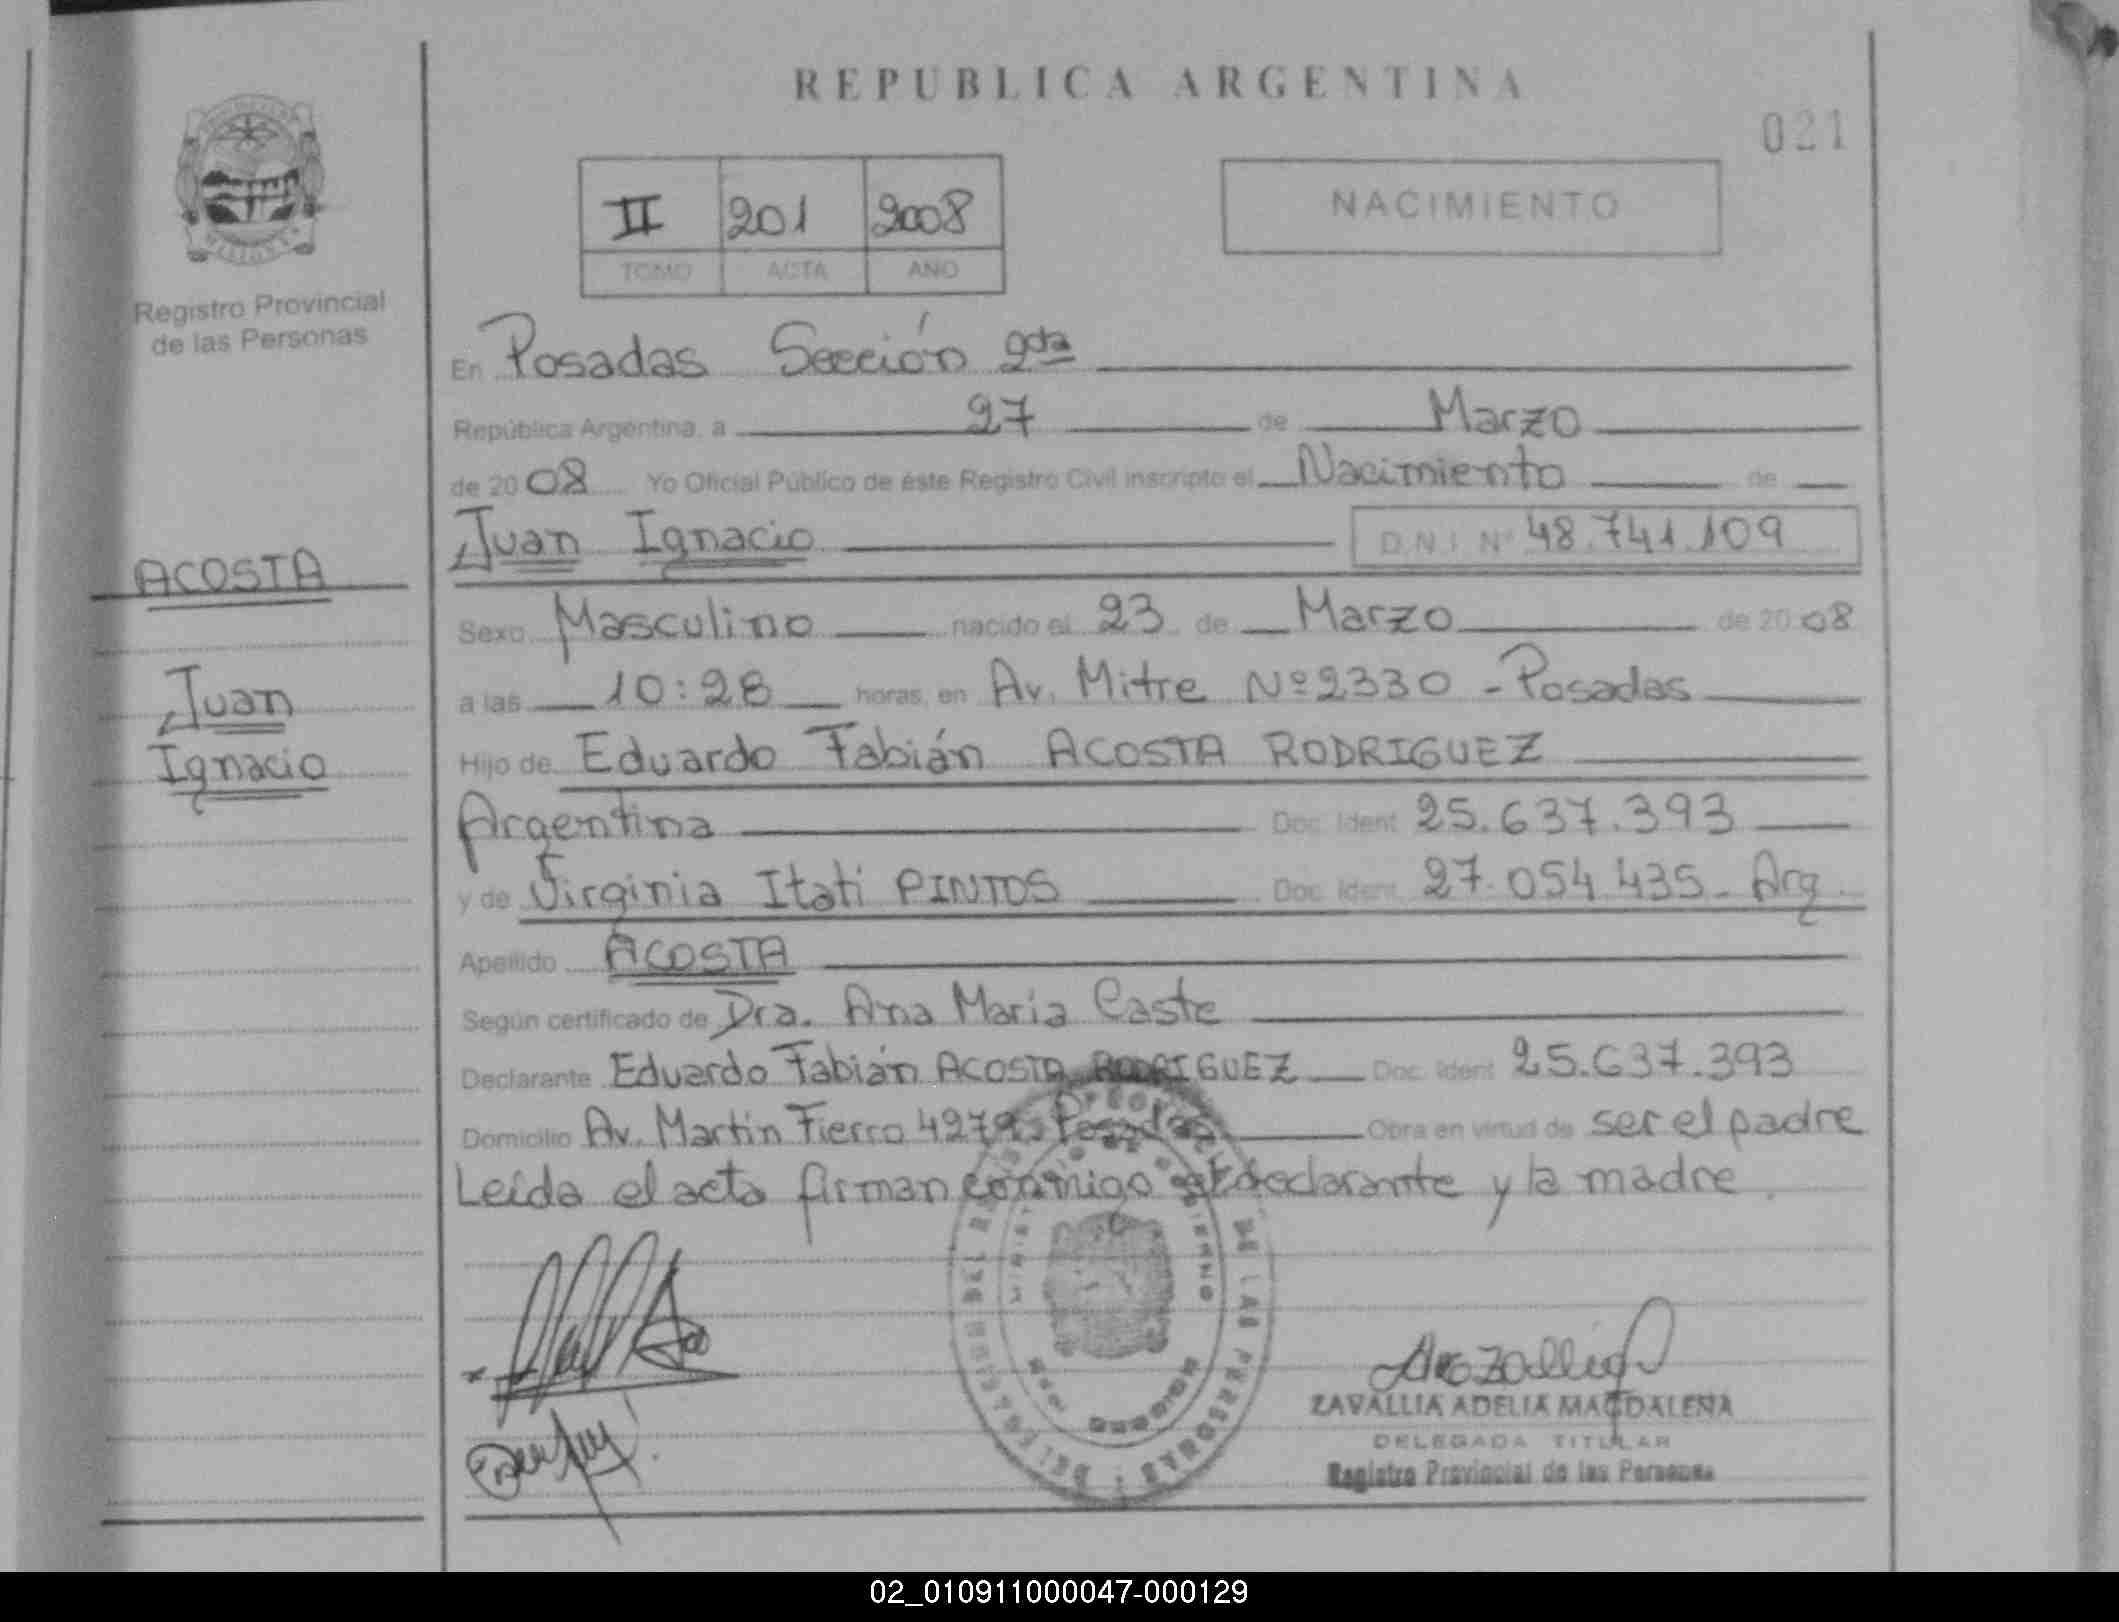 REPUBLICA ARGENTINA
021
II 201 2008
TOMO ACTA AÑO
NACIMIENTO
Registro Provincial
de las Personas
En Posadas Sección 2da
República Argentina, a 27 de Marzo
de 2008 Yo Oficial Público de éste Registro Civil inscripto el Nacimiento de
Juan Ignacio D.N.I. Nº 48.741.109
ACOSTA
Juan
Ignacio
Sexo Masculino nacido el 23 de Marzo de 2008
a las 10:28 horas, en Av. Mitre Nº 2330 - Posadas
Hijo de Eduardo Fabián ACOSTA RODRIGUEZ
Argentina Doc. Ident. 25.637.393
y de Virginia Itatí PINTOS Doc. Ident. 27.054.435 - Arg
Apellido ACOSTA
Según certificado de Dra. Ana Maria Caste
Declarante Eduardo Fabián ACOSTA RODRIGUEZ Doc. Ident. 25.637.393
Domicilio Av. Martin Fierro Posadas Obra en virtud de ser el padre
Leída el acta firman conmigo el declarante y la madre.
DE LAS PERSONAS
ZAVALLIA ADELIA MAGDALENA
DELEGADA TITULAR
Registro Provincial de las Personas
02_010911000047-000129